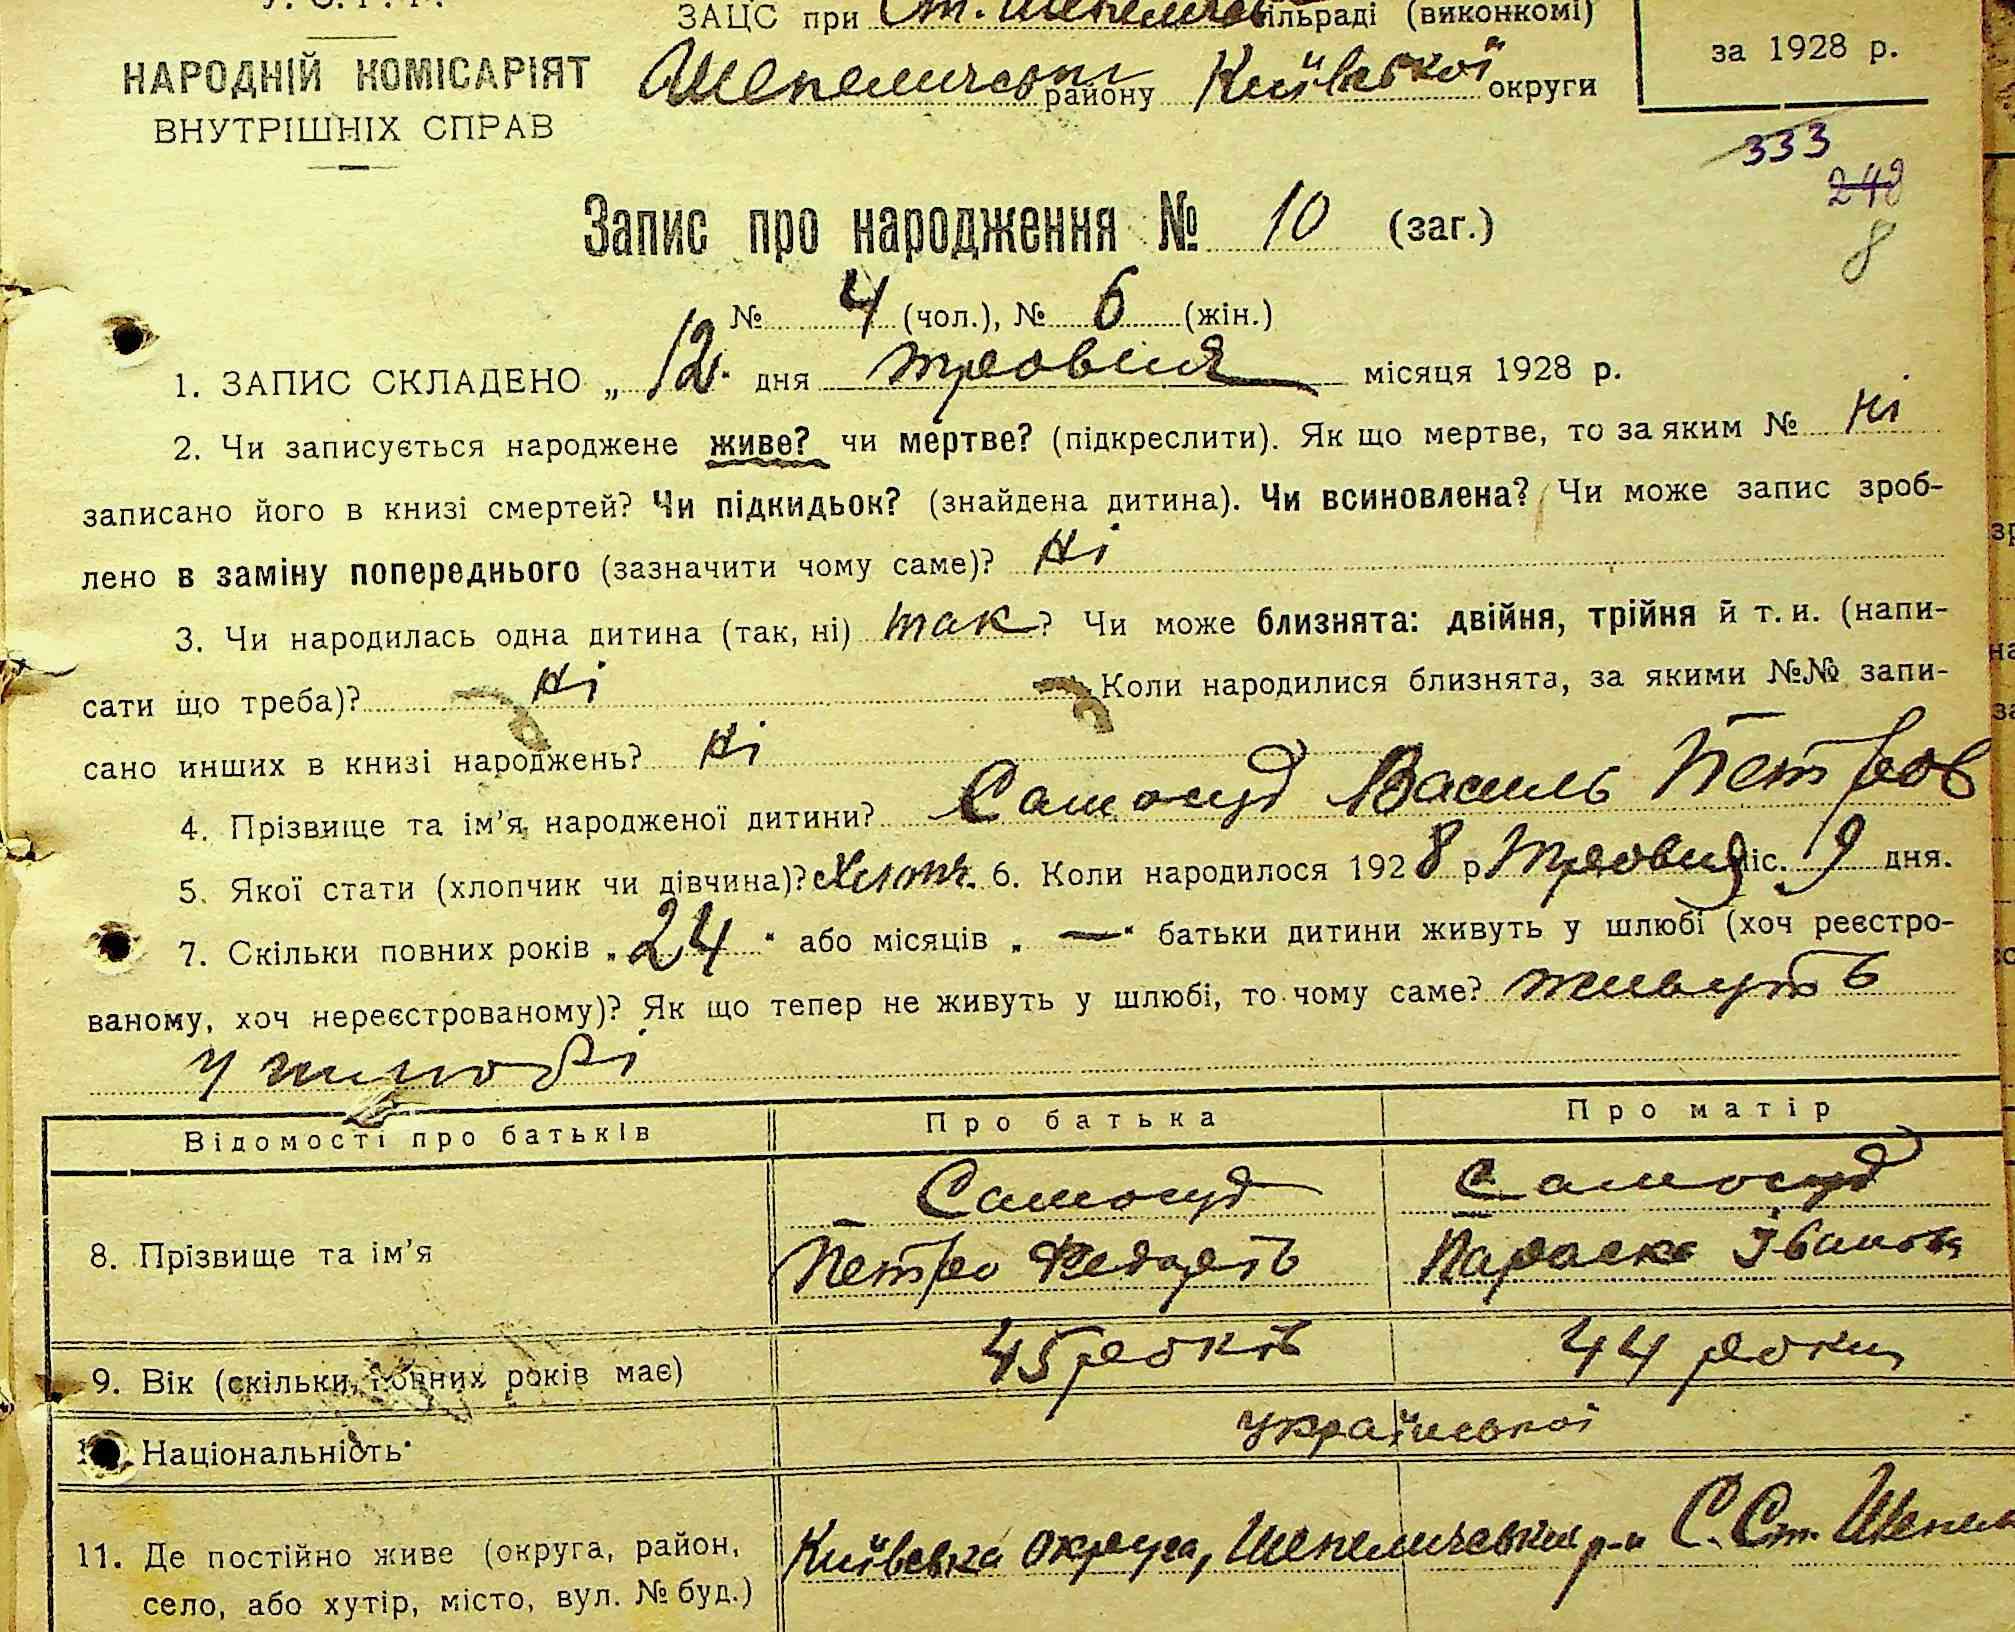 У. С. Р. Р.
ЗАЦС при Ст. Шепелич сільраді (виконкомі)
НАРОДНІЙ КОМІСАРІЯТ
ВНУТРІШНІХ СПРАВ
Шепеличськ району Київської округи
за 1928 р.
333
248
8
Запис про народження № 10 (заг.)
№ 4 (чол.), № 6 (жін.)
1. ЗАПИС СКЛАДЕНО „ 12 " дня травня місяця 1928 р.
2. Чи записується народжене живе? чи мертве? (підкреслити). Як що мертве, то за яким № Ні
записано його в книзі смертей? Чи підкидьок? (знайдена дитина). Чи всиновлена? Чи може запис зроб-
лено в заміну попереднього (зазначити чому саме)? Ні
3. Чи народилась одна дитина (так, ні) так? Чи може близнята: двійня, трійня й т. и. (напи-
сати що треба)? Ні Коли народилися близнята, за якими №№ запи-
сано инших в книзі народжень? Ні
4. Прізвище та ім'я народженої дитини? Самосуд Василь Петров
5. Якої стати (хлопчик чи дівчина)? Хлопч. 6. Коли народилося 1928 р травня міс. 9 дня.
7. Скільки повних років „ 24 " або місяців „ — " батьки дитини живуть у шлюбі (хоч реєстро-
ваному, хоч нереєстрованому)? Як що тепер не живуть у шлюбі, то чому саме? живуть
у шлюбі
Відомості про батьків Про батька Про матір
Самосуд Самосуд
8. Прізвище та ім'я Петро Параска Іванова
9. Вік (скільки повних років має) 45 років 44 роки
Національність української
11. Де постійно живе (округа, район, Київська округа, Шепеличський р-н С. Ст. Шепел
село, або хутір, місто, вул. № буд.)